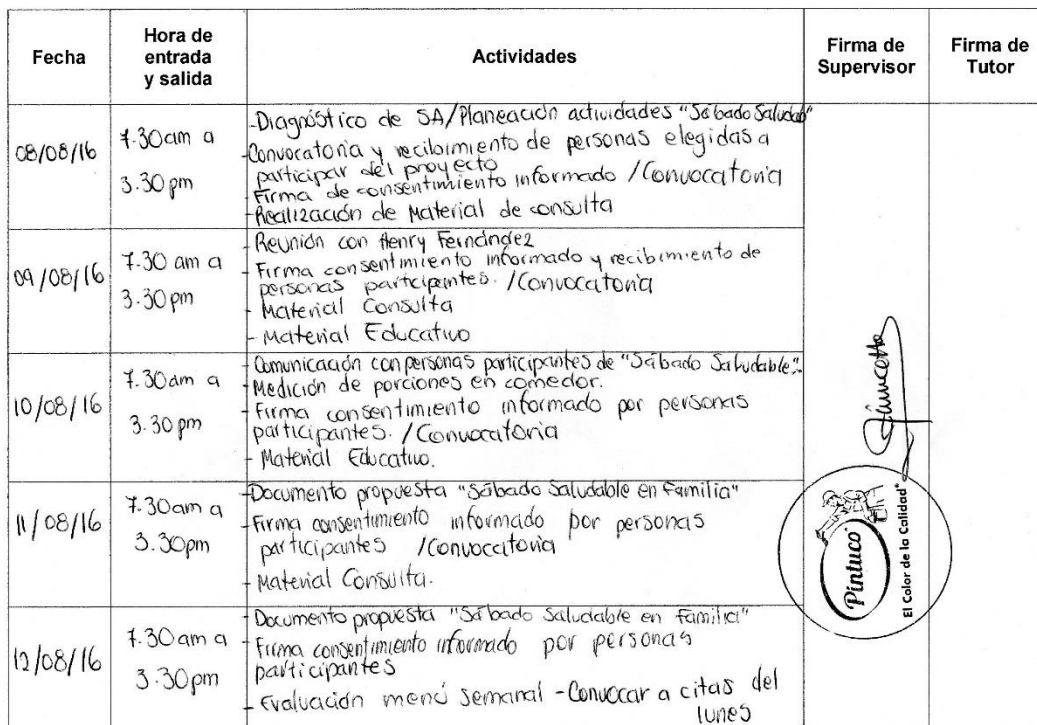 Fecha
Hora de
entrada
y salida
Actividades
Firma de
Supervisor
Firma de
Tutor
08/08/16
7.30am a
3.30pm
-Diagnóstico de SA/Planeación actividades "Sábado Saludab"
-Convocatoria y recibimiento de personas elegidas a
participar del proyecto
Firma de consentimiento informado /Convocatoria
-Realización de Material de consulta
09/08/16
7.30 am a
3.30pm
- Reunión con Henry Fernández
- Firma consentimiento informado y recibimiento de
personas participantes. /Convocatoria
- Material Consulta
- Material Educativo
10/08/16
7.30am a
3.30pm
-Comunicación con personas participantes de "Sábado Saludable".
-Medición de porciones en comedor.
- Firma consentimiento informado por personas
participantes. /Convocatoria
- Material Educativo.
11/08/16
7.30am a
3.30pm
-Documento propuesta "Sábado Saludable en Familia"
- Firma consentimiento informado por personas
participantes /Convocatoria
- Material Consulta.
12/08/16
7.30am a
3.30pm
- Documento propuesta "Sábado Saludable en Familia"
- Firma consentimiento informado por personas
participantes
- Evaluación menú semanal -Convocar a citas del
lunes
Pintuco
El Color de la Calidad